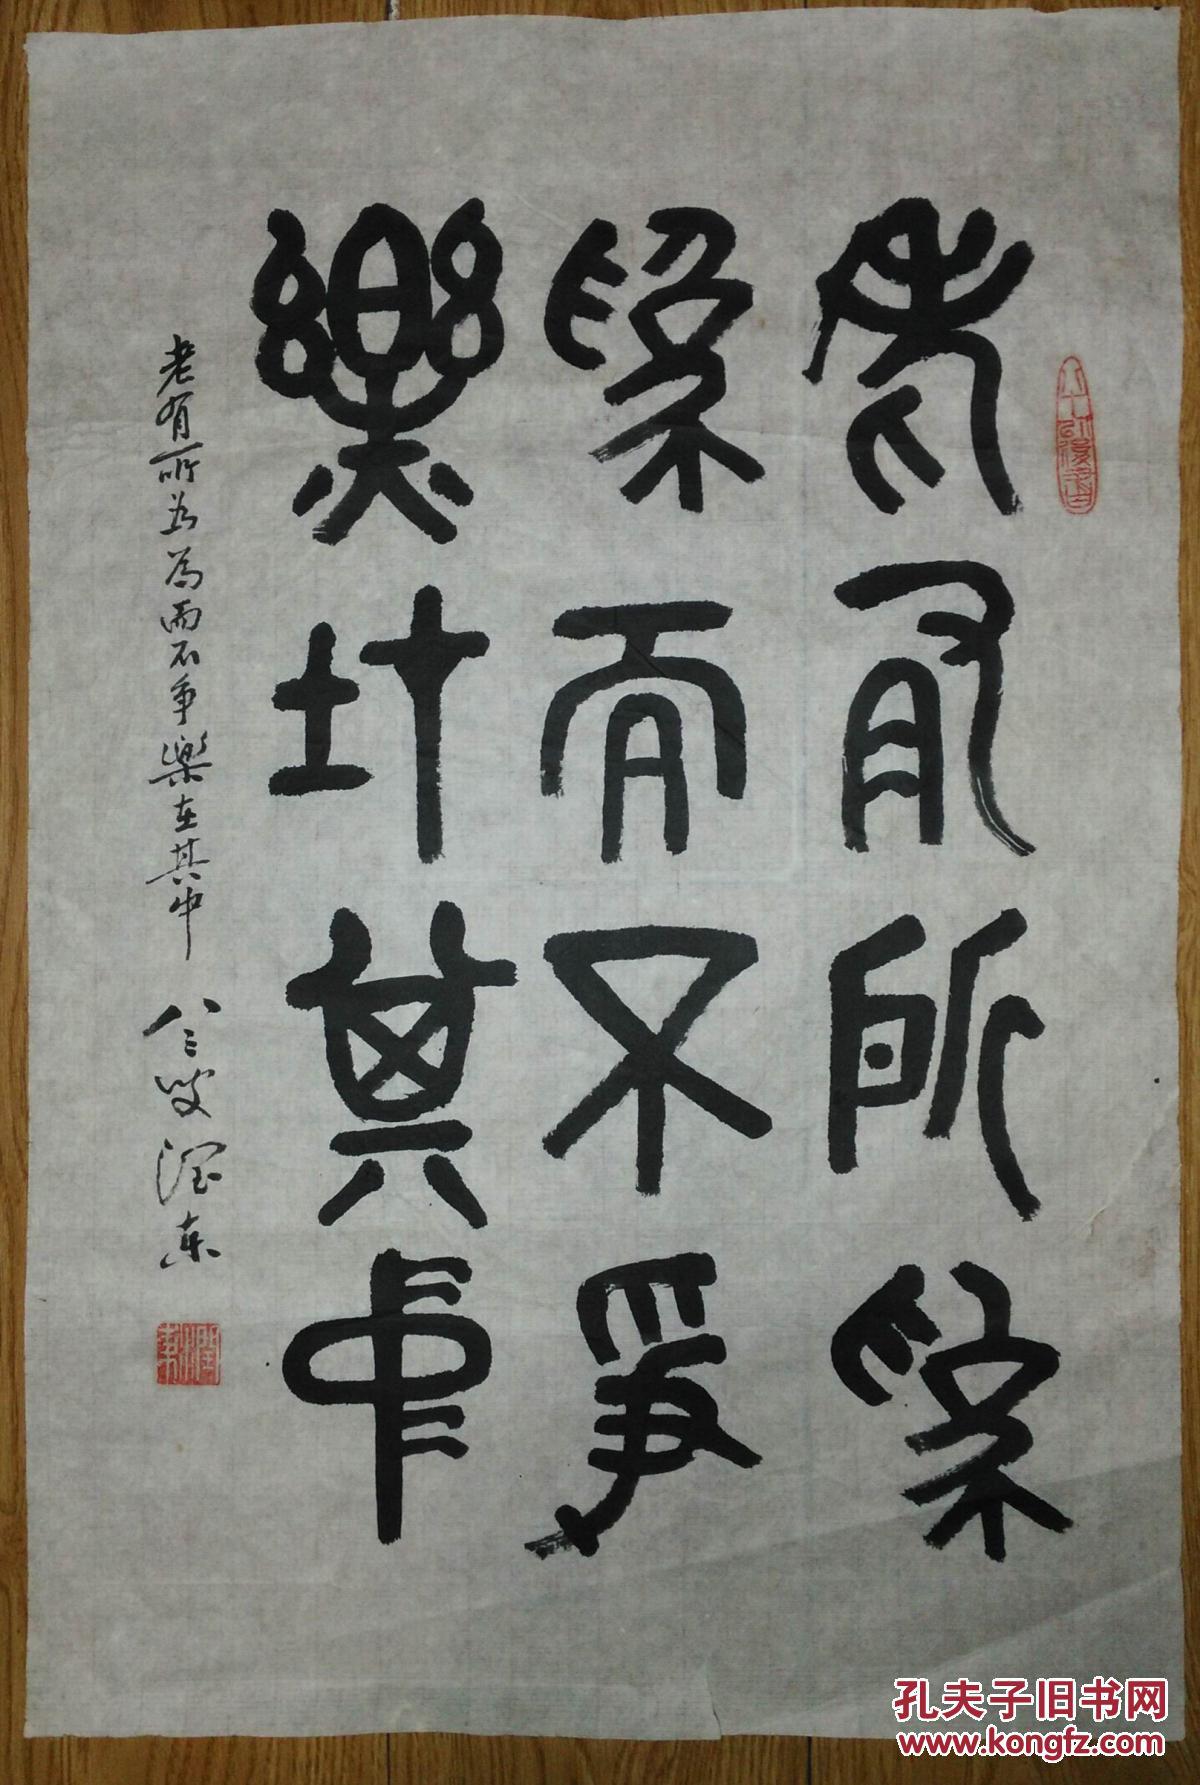 老有所為
為而不爭
樂在其中
老有所为為而不争樂在其中 八三叟潤東
潤東
孔夫子旧书网
www.kongfz.com